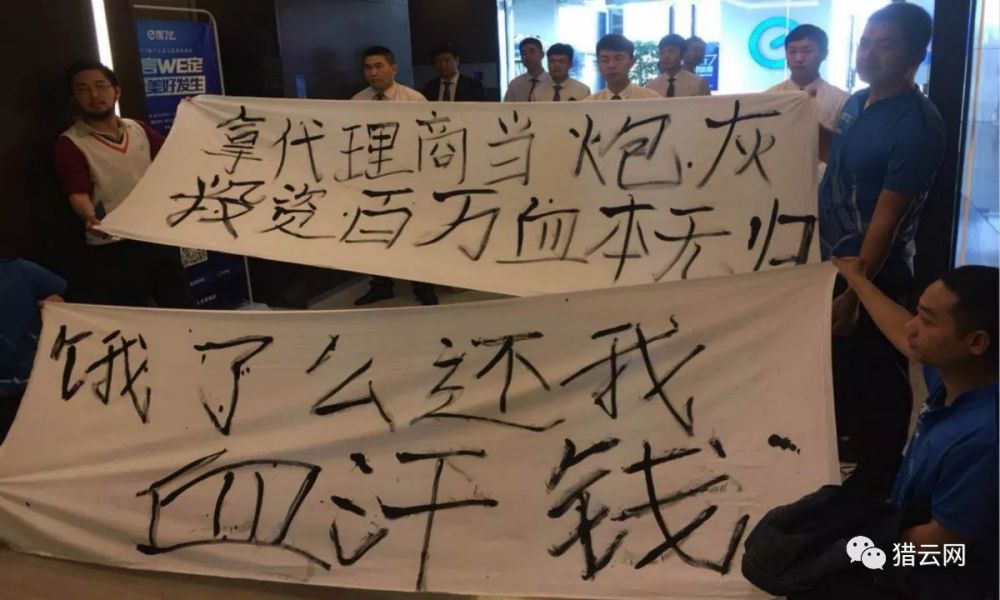 饿了么
言WE定
美好发生
拿代理商当炮灰
投资百万血本无归
饿了么还我
血汗钱
猎云网